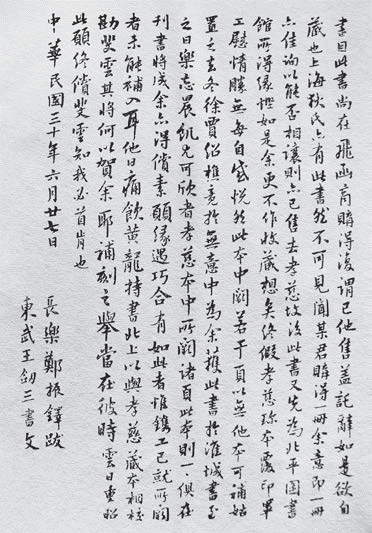 書目此書尚在飛函商購得復謂已他售蓋託辭如是欲自
藏也上海狄氏亦有此書然不可見聞某君購得一冊余意即一冊
亦佳詢以能否相讓則亦已售去孝慈故後此書又先為北平圖書
館所得緣慳如是余更不作收藏想矣終假孝慈珍本覆印畢
工慰情勝無每自感悅然此本中闕若干頁以無他本可補姑
置之去冬徐賈紹樵竟於無意中為余獲此書於淮城書至
之日樂忘晨飢尤可欣者孝慈本中所闕諸頁此本則一一俱在
刊書時成余亦得償書願緣遇巧合有如此者惟鐫工已就所闕
者未能補入耳他日痛飲黃龍持書北上以與孝慈藏本相校
勘斐雲其將何以賀余耶補刻之舉當在彼時雲日重昭
此願終償斐雲知我必首肯也
中華民國三十年六月廿七日
長樂鄭振鐸跋
東武王劒三書文